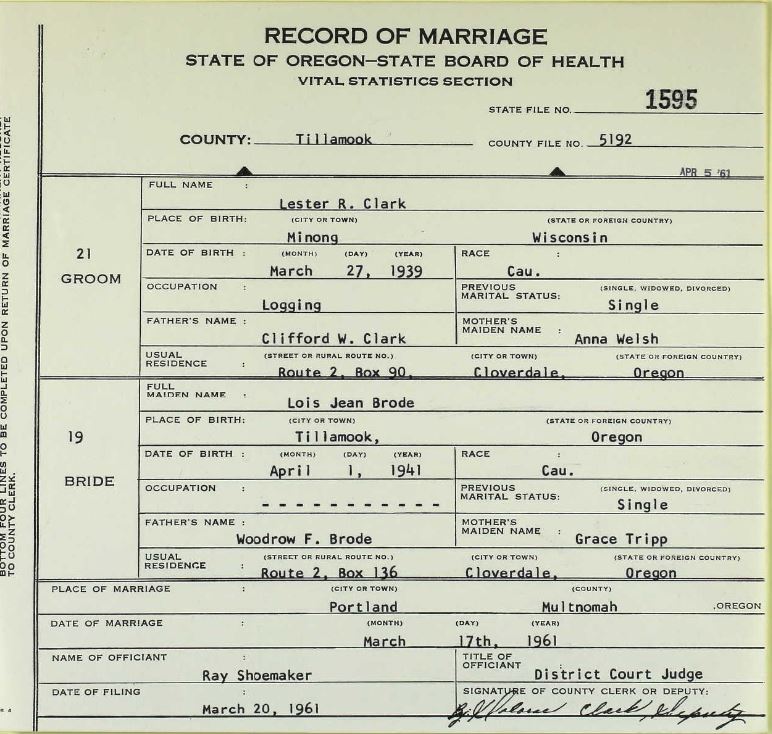 RECORD OF MARRIAGE
STATE OF OREGON—STATE BOARD OF HEALTH
VITAL STATISTICS SECTION
STATE FILE NO. 1595
COUNTY: Tillamook COUNTY FILE NO. 5192
APR 5 '61
21
GROOM
FULL NAME :
Lester R. Clark
PLACE OF BIRTH: (CITY OR TOWN) (STATE OR FOREIGN COUNTRY)
Minong Wisconsin
DATE OF BIRTH : (MONTH) (DAY) (YEAR) RACE :
March 27, 1939 Cau.
OCCUPATION : PREVIOUS MARITAL STATUS: (SINGLE, WIDOWED, DIVORCED)
Logging Single
FATHER'S NAME : MOTHER'S MAIDEN NAME :
Clifford W. Clark Anna Welsh
USUAL RESIDENCE : (STREET OR RURAL ROUTE NO.) (CITY OR TOWN) (STATE OR FOREIGN COUNTRY)
Route 2, Box 90, Cloverdale, Oregon
19
BRIDE
FULL MAIDEN NAME :
Lois Jean Brode
PLACE OF BIRTH: (CITY OR TOWN) (STATE OR FOREIGN COUNTRY)
Tillamook, Oregon
DATE OF BIRTH : (MONTH) (DAY) (YEAR) RACE :
April 1, 1941 Cau.
OCCUPATION : PREVIOUS MARITAL STATUS: (SINGLE, WIDOWED, DIVORCED)
- - - - - - - - - - - Single
FATHER'S NAME : MOTHER'S MAIDEN NAME :
Woodrow F. Brode Grace Tripp
USUAL RESIDENCE : (STREET OR RURAL ROUTE NO.) (CITY OR TOWN) (STATE OR FOREIGN COUNTRY)
Route 2, Box 136 Cloverdale, Oregon
PLACE OF MARRIAGE : (CITY OR TOWN) (COUNTY)
Portland Multnomah ,OREGON
DATE OF MARRIAGE : (MONTH) (DAY) (YEAR)
March 17th, 1961
NAME OF OFFICIANT : TITLE OF OFFICIANT :
Ray Shoemaker District Court Judge
DATE OF FILING : SIGNATURE OF COUNTY CLERK OR DEPUTY:
March 20, 1961 Clark, Deputy
BOTTOM FOUR LINES TO BE COMPLETED UPON RETURN OF MARRIAGE CERTIFICATE
TO COUNTY CLERK.